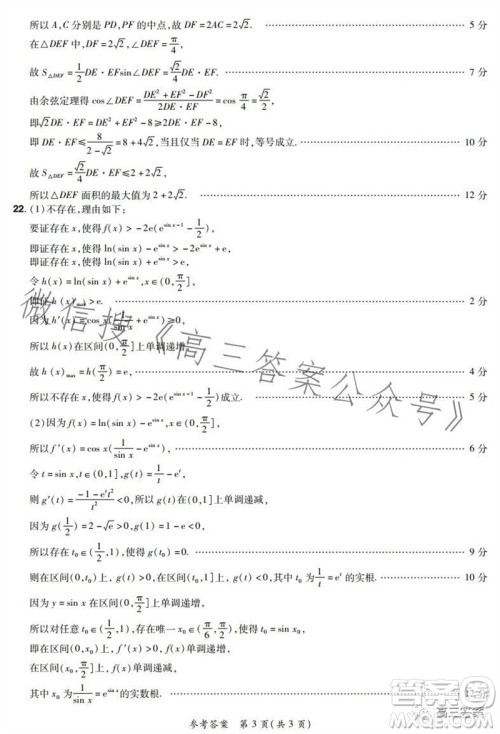 所以 A,C 分别是 PD,PF 的中点,故 DF=2AC=2√2. 5 分
在△DEF 中,DF=2√2,∠DEF=π/4,
故 S△DEF=1/2 DE·EFsin∠DEF=√2/4 DE·EF. 7 分
由余弦定理得 cos∠DEF=(DE²+EF²-DF²)/(2DE·EF)=√2/2,
即√2DE·EF=DE²+EF²-8≥2DE·EF-8,
即 DE·EF≤8/(2-√2)=8+4√2,当且仅当 DE=EF 时,等号成立. 10 分
故 S△DEF=√2/4 DE·EF≤2+2√2.
所以△DEF 面积的最大值为 2+2√2. 12 分
22.(1)不存在,理由如下:
要证存在 x,使得 f(x)>-2e(e^(sin x-1)-1/2),
即证存在 x,使得 ln(sin x)-e^(sin x)>-2e^(sin x)+e,
即证存在 x,使得 ln(sin x)+e^(sin x)>e,
令 h(x)=ln(sin x)+e^(sin x),x∈(0,π/2],
即证 h(x)max>e. 2 分
因为 h′(x)=cos x(1/sin x+e^(sin x))≥0,
所以 h(x)在区间(0,π/2]上单调递增,
故 h(x)max=h(π/2)=e, 4 分
所以不存在 x,使得 f(x)>-2e(e^(sin x-1)-1/2)成立. 5 分
(2)因为 f(x)=ln(sin x)-e^(sin x),x∈(0,π/2],
所以 f′(x)=cos x(1/sin x-e^(sin x)), 6 分
令 t=sin x,t∈(0,1],g(t)=1/t-e^t,
则 g′(t)=(-1-e^t t²)/t²<0,所以 g(t)在(0,1]上单调递减,
因为 g(1/2)=2-√e>0,g(1)=1-e<0,
所以存在 t₀∈(1/2,1),使得 g(t₀)=0. 9 分
则在区间(0,t₀)上,g(t)>0,f(x)单调递增,其中 t₀ 为1/t=e^t 的实根. 10 分
因为 y=sin x 在(0,π/2]上单调递增,
所以对任意 t₀∈(1/2,1),存在唯一 x₀∈(π/6,π/2),使得 sin x₀=t₀,
即在区间(0,x₀)上,f(x)单调递增,
在区间(x₀,π/2]上,f(x)单调递减,
其中 x₀ 为1/sin x=e^(sin x)的实数根.
参考答案 第 3 页(共 3 页)
微信搜《高三答案公众号》
高三答案